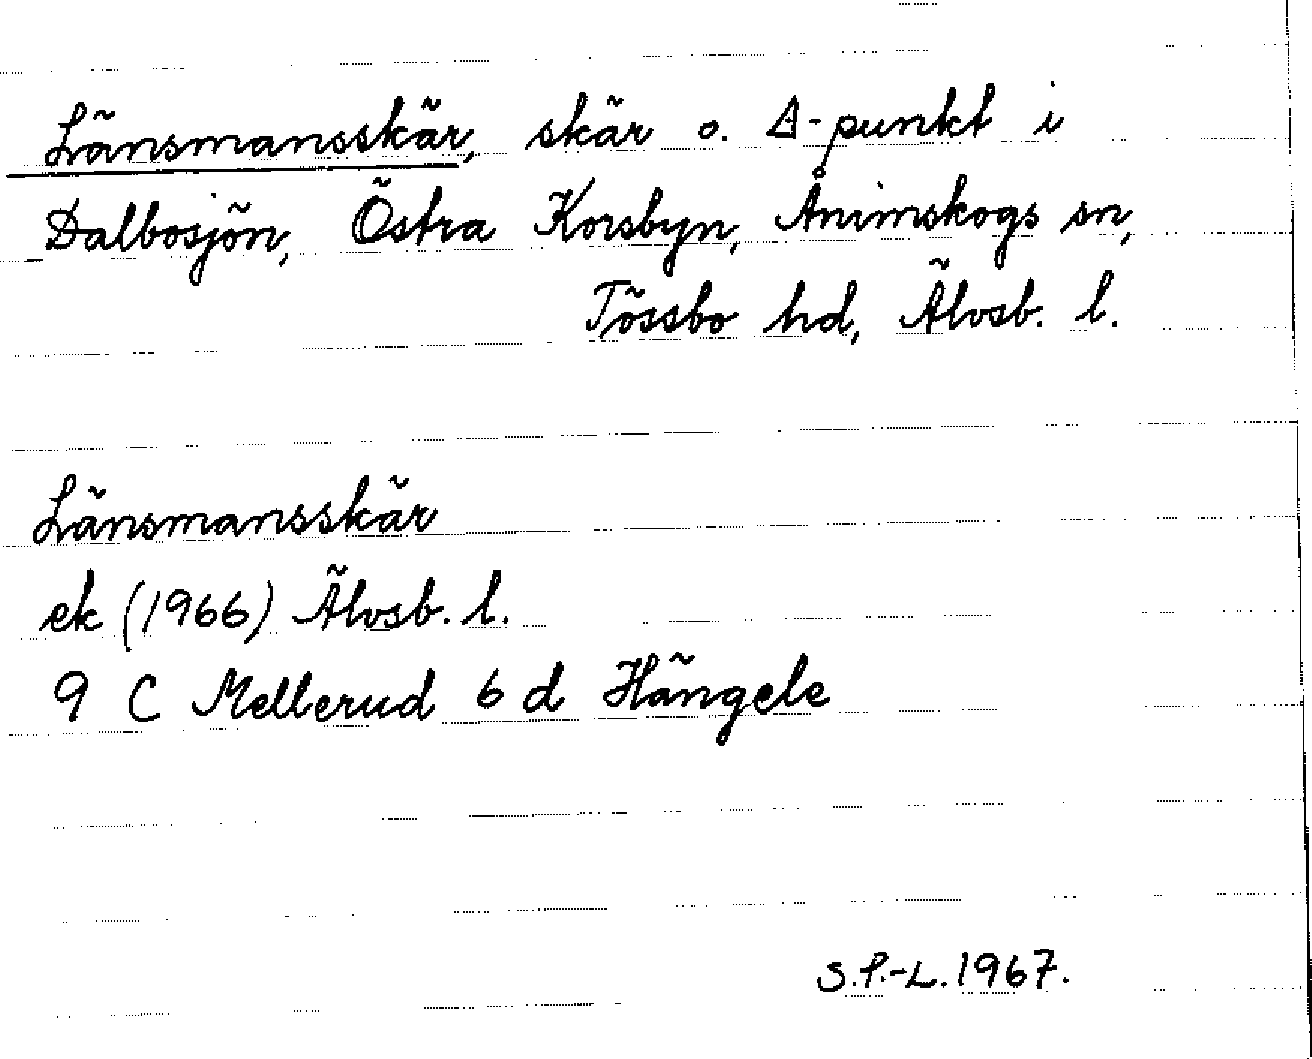 Länsmansskär, skär o. Δ-punkt i
Dalbosjön, Östra Korsbyn, Ånimskogs sn,
Tössbo hd, Älvsb. l.
Länsmansskär
ek (1966) Älvsb. l.
9 C Mellerud 6 d Hängele
S.P.-L. 1967.